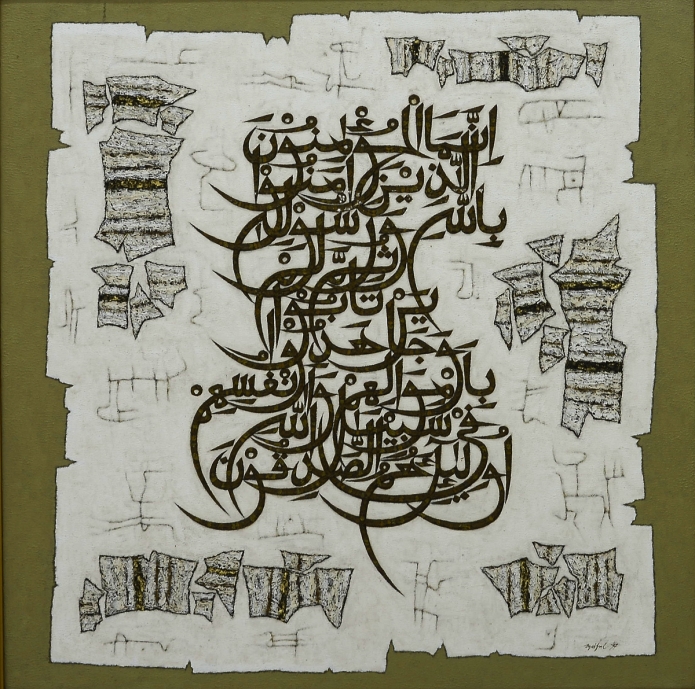 اِنَّمَا الْمُؤْمِنُوْنَ
الَّذِيْنَ اٰمَنُوْا
بِاللّٰهِ وَرَسُوْلِهٖ
ثُمَّ لَمْ
يَرْتَابُوْا
وَجَاهَدُوْا
بِاَمْوَالِهِمْ وَاَنْفُسِهِمْ
فِيْ سَبِيْلِ اللّٰهِ
اُولٰٓئِكَ هُمُ الصّٰدِقُوْنَ